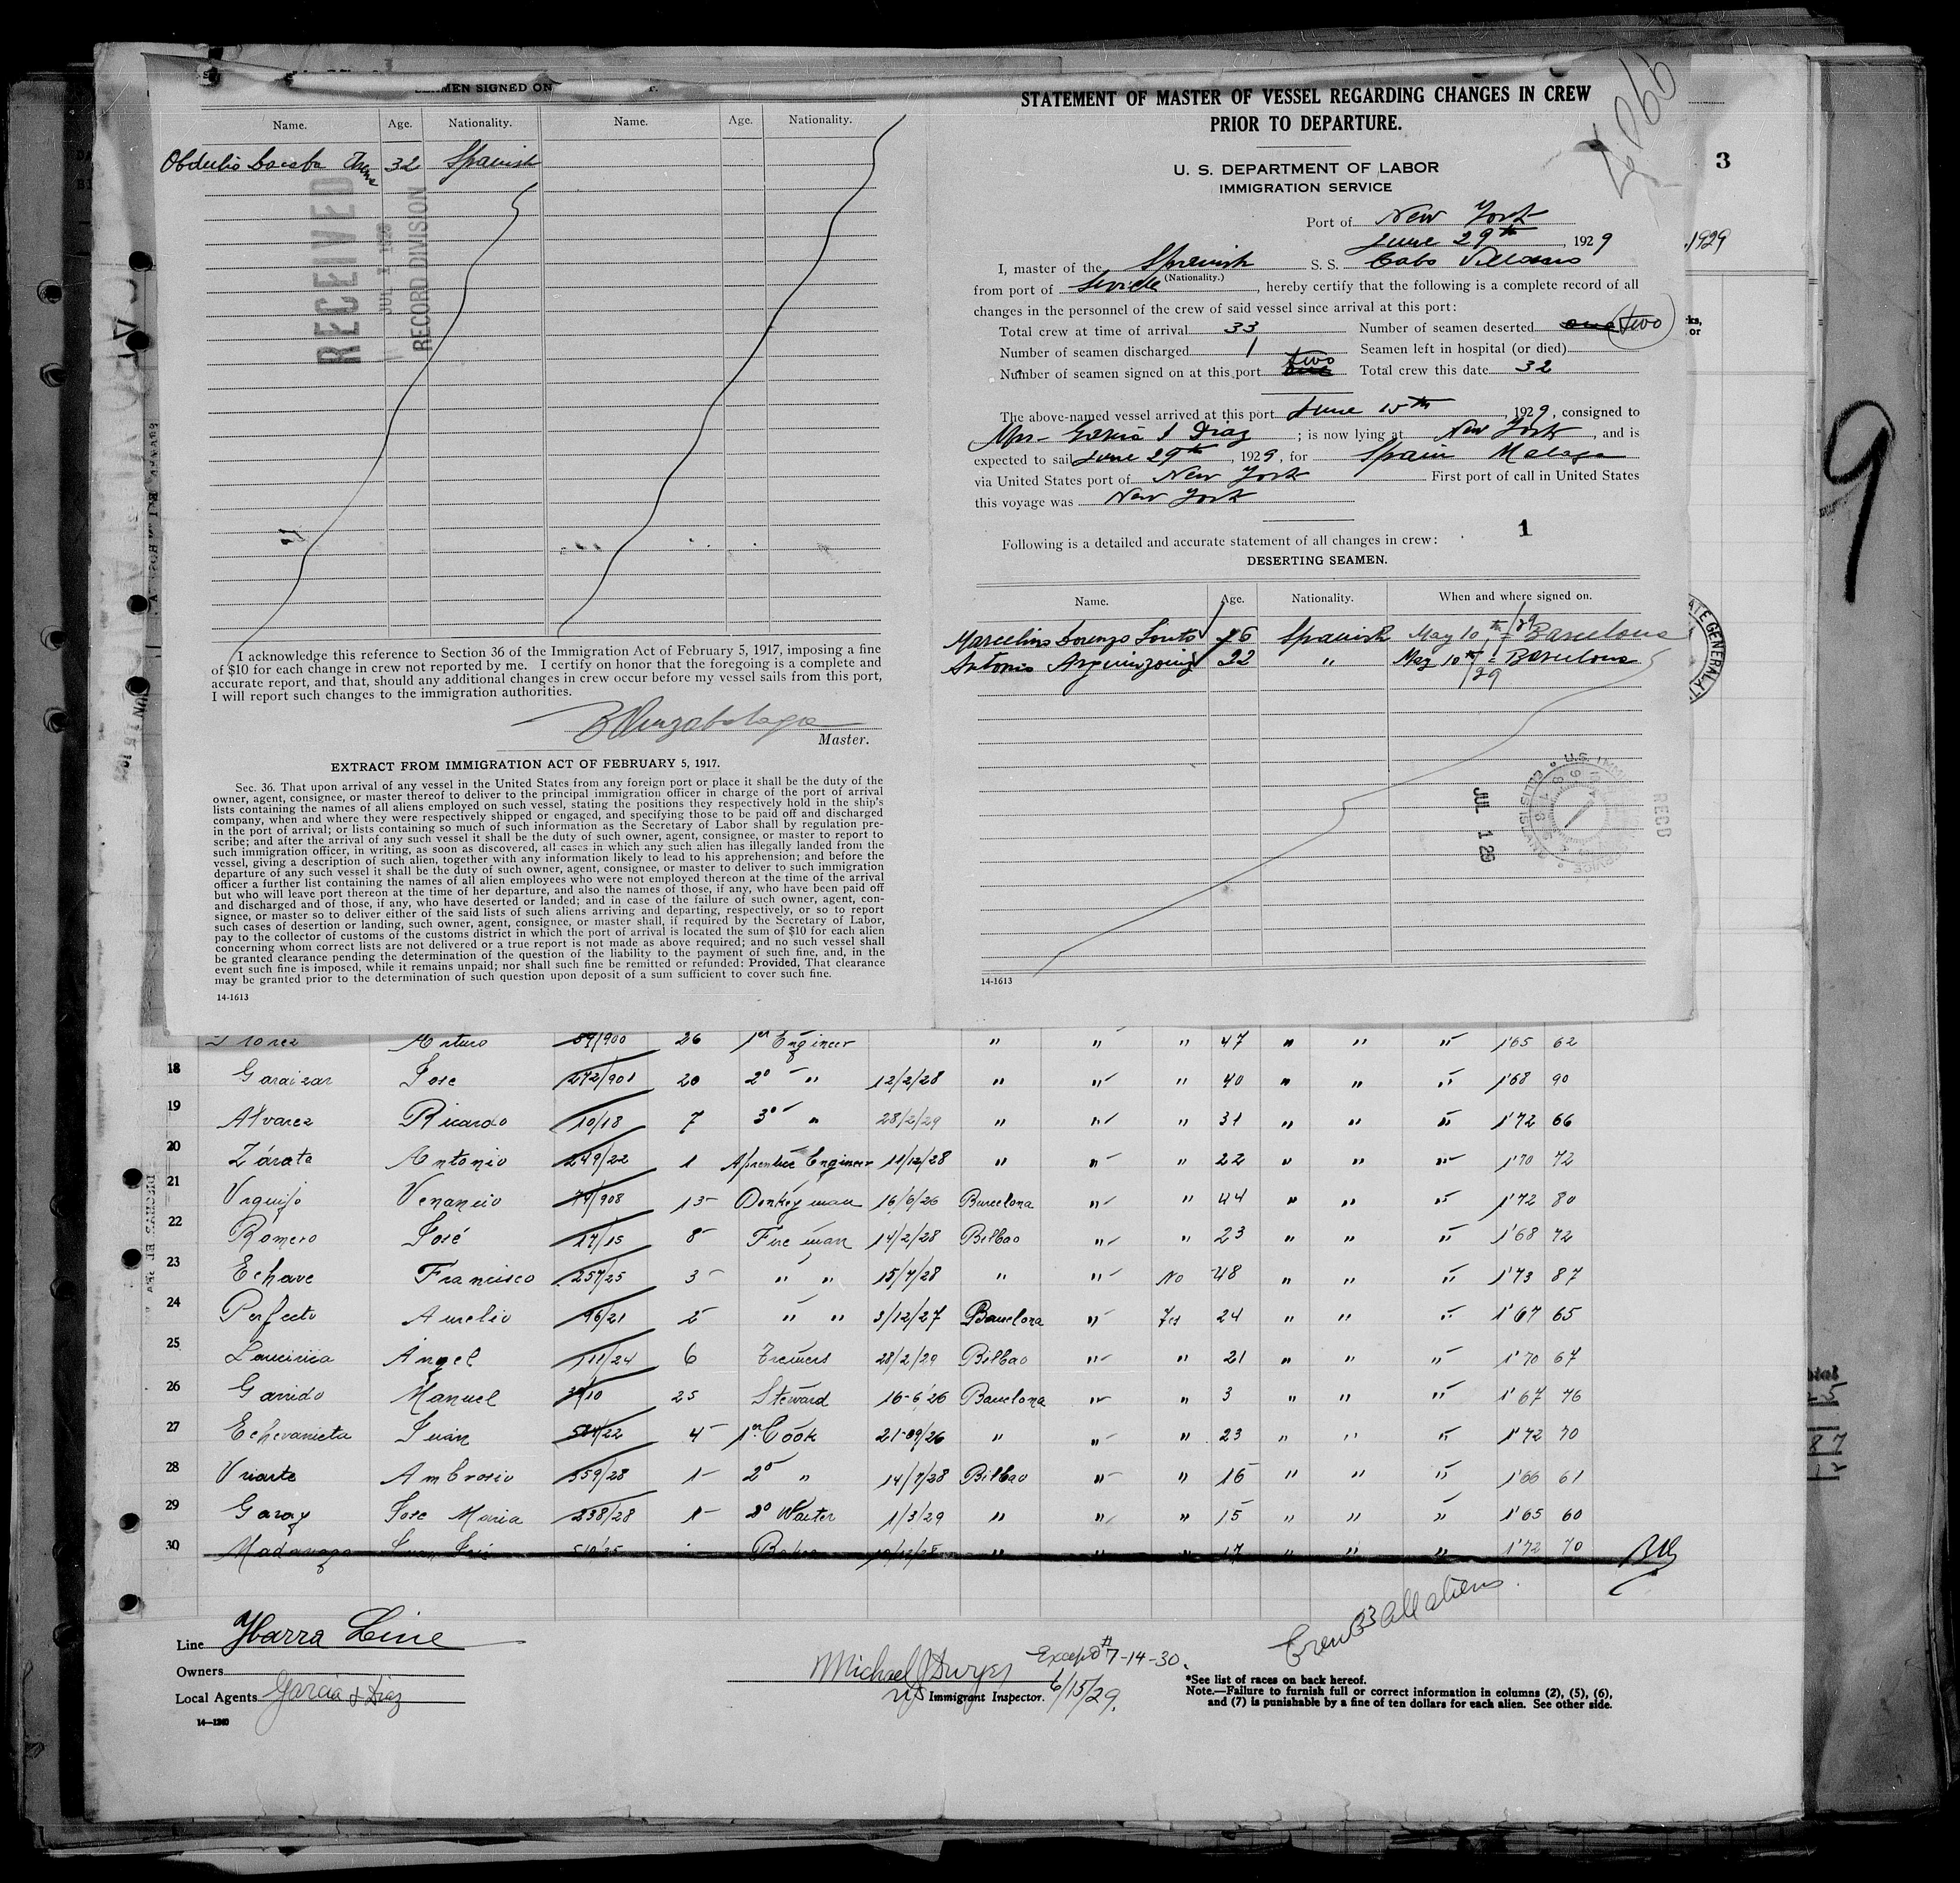 SEAMEN SIGNED ON
Name. Age. Nationality. Name. Age. Nationality.
Obdulio 32 Spanish
RECEIVED
JUL 1 1929
RECORD DIVISION
I acknowledge this reference to Section 36 of the Immigration Act of February 5, 1917, imposing a fine
of $10 for each change in crew not reported by me. I certify on honor that the foregoing is a complete and
accurate report, and that, should any additional changes in crew occur before my vessel sails from this port,
I will report such changes to the immigration authorities.
Master.
EXTRACT FROM IMMIGRATION ACT OF FEBRUARY 5, 1917.
Sec. 36. That upon arrival of any vessel in the United States from any foreign port or place it shall be the duty of the
owner, agent, consignee, or master thereof to deliver to the principal immigration officer in charge of the port of arrival
lists containing the names of all aliens employed on such vessel, stating the positions they respectively hold in the ship's
company, when and where they were respectively shipped or engaged, and specifying those to be paid off and discharged
in the port of arrival; or lists containing so much of such information as the Secretary of Labor shall by regulation pre-
scribe; and after the arrival of any such vessel it shall be the duty of such owner, agent, consignee, or master to report to
such immigration officer, in writing, as soon as discovered, all cases in which any such alien has illegally landed from the
vessel, giving a description of such alien, together with any information likely to lead to his apprehension; and before the
departure of any such vessel it shall be the duty of such owner, agent, consignee, or master to deliver to such immigration
officer a further list containing the names of all alien employees who were not employed thereon at the time of the arrival
but who will leave port thereon at the time of her departure, and also the names of those, if any, who have been paid off
and discharged and of those, if any, who have deserted or landed; and in case of the failure of such owner, agent, con-
signee, or master so to deliver either of the said lists of such aliens arriving and departing, respectively, or so to report
such cases of desertion or landing, such owner, agent, consignee, or master shall, if required by the Secretary of Labor,
pay to the collector of customs of the customs district in which the port of arrival is located the sum of $10 for each alien
concerning whom correct lists are not delivered or a true report is not made as above required; and no such vessel shall
be granted clearance pending the determination of the question of the liability to the payment of such fine, and, in the
event such fine is imposed, while it remains unpaid; nor shall such fine be remitted or refunded: Provided, That clearance
may be granted prior to the determination of such question upon deposit of a sum sufficient to cover such fine.
14-1613
STATEMENT OF MASTER OF VESSEL REGARDING CHANGES IN CREW
PRIOR TO DEPARTURE.
U. S. DEPARTMENT OF LABOR
IMMIGRATION SERVICE
3
Port of New York
June 29th, 1929
1929
I, master of the Spanish S. S. Cabo Villano
(Nationality.)
from port of Seville, hereby certify that the following is a complete record of all
changes in the personnel of the crew of said vessel since arrival at this port:
Total crew at time of arrival 33 Number of seamen deserted one (two)
Number of seamen discharged 1 Seamen left in hospital (or died)
Number of seamen signed on at this port one two Total crew this date 32
The above-named vessel arrived at this port June 15th, 1929, consigned to
Garcia & Diaz; is now lying at New York, and is
expected to sail June 29th, 1929, for Spain Malaga
via United States port of New York First port of call in United States
this voyage was New York
1
Following is a detailed and accurate statement of all changes in crew:
DESERTING SEAMEN.
Name. Age. Nationality. When and where signed on.
Marcelino Lorenzo Souto 26 Spanish May 10th/29 = Barcelona
Antonio 22 " May 10th/29 = Barcelona
JUL 1 29
RECD
14-1613
9
Arturo 59/900 26 1er Engineer " " " 47 " " " 1'65 62
18 Garaizar Jose 272/901 20 2º " 12/2/28 " " " 40 " " " 1'68 90
19 Alvarez Ricardo 10/18 7 3º " 28/2/29 " " " 31 " " " 1'72 66
20 Zárate Antonio 249/22 1 Aprentice Engineer 11/12/28 " " " 22 " " " 1'70 72
21 Urquijo Venancio 79/908 13 Donkey man 16/6/26 Barcelona " " 44 " " " 1'72 80
22 Romero José 17/15 8 Fire man 14/2/28 Bilbao " " 23 " " " 1'68 72
23 Echave Francisco 257/25 3 " " 15/7/28 " " No 48 " " " 1'73 87
24 Perfecto Aurelio 96/21 5 " " 3/12/27 Barcelona " Yes 24 " " " 1'67 65
25 Laucirica Angel 111/24 6 28/2/29 Bilbao " " 21 " " " 1'70 67
26 Garrido Manuel 39/10 25 Steward 16-6/26 Barcelona " " 3 " " " 1'67 76
27 Echevarrieta Juán 22 4 1er Cook 21-09/26 " " " 23 " " " 1'72 70
28 Uriarte Ambrosio 359/28 1 2º " 14/7/28 Bilbao " " 16 " " " 1'66 61
29 Garay Jose Maria 238/28 1 2º Waiter 1/3/29 " " " 15 " " " 1'65 60
30 Madariaga " " " 17 " " " 1'72 70
Crew 33 all aliens.
Line Ybarra Line
Owners
Local Agents Garcia & Diaz
14-1240
Michael J Dwyer Except # 7-14-30.
US Immigrant Inspector. 6/15/29.
*See list of races on back hereof.
Note.—Failure to furnish full or correct information in columns (2), (5), (6),
and (7) is punishable by a fine of ten dollars for each alien. See other side.